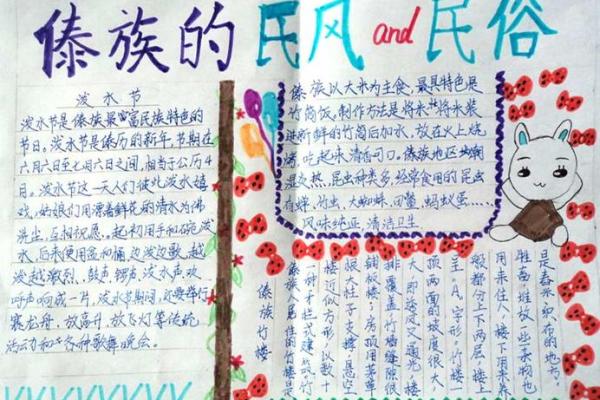 傣族的民风and民俗
泼水节
泼水节是傣族最富民族特色的
节日。泼水节是傣历的新年,节期在
六月六日至七月六日之间,相当于公历4
月。泼水节这一天人们彼此泼水嬉
戏,姑娘们用漂着鲜花的清水为佛
洗尘,互相祝愿。起初用手和碗泼
水,后来便用盆和桶,边泼边歌,越
泼越激烈,鼓声,锣声,泼水声欢
呼声响成一片,泼水节期间,还要举行
赛龙舟、放高升、放飞灯等传统
活动和各种歌舞晚会。
傣族以大米为主食,最具特色是
竹筒饭,制作方法是将米将水装
进新鲜的竹筒后加水,放在火上烧
烤,吃起来清香可口。傣族地区潮
湿炎热,昆虫种类多,经常食用的昆虫
有蝉、竹虫、大蜘蛛、田鳖、蚂蚁蛋……
风味纯正 清洁卫生
是舂米织布的地方。
用来住人,楼下用来养
牲畜堆放一些杂物也
般都分上下两层,楼上
呈"人"字形。竹楼一
顶两面的坡度很大
大,即透风又通光,楼
排覆盖,竹墙缝隙很
铺板楼;房顶用茅草
根大柱子支撑,悬空
楼近似方形,以数十
一种干栏式建筑,竹
傣族人居住的竹楼是
傣族竹楼